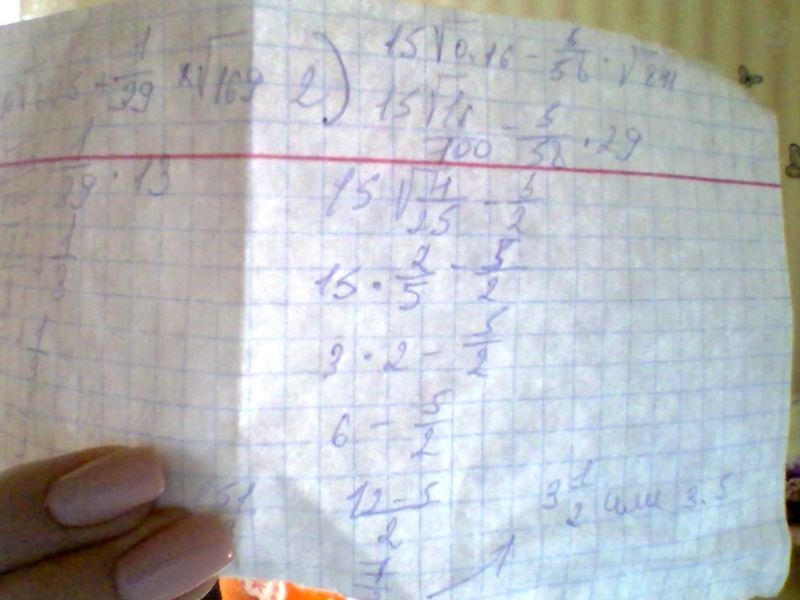 + 1/39 × √169
1/39 · 13
1/3
1/3
2) 15√0,16 - 5/58 · √841
15√16/100 - 5/58 · 29
15√4/25 - 5/2
15 · 2/5 - 5/2
3 · 2 - 5/2
6 - 5/2
12-5/2
7/2
3 1/2 или 3.5